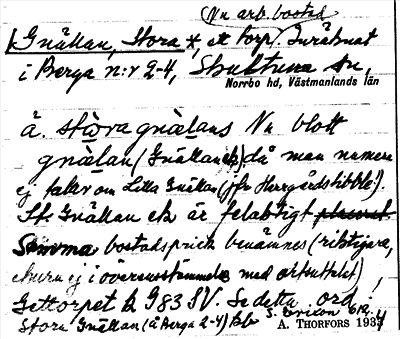 Nu arb. bostad
Gnällan, Stora *, ett torp, inräknat
i Berga n:r 2-4, Skultuna sn,
Norrbo hd, Västmanlands län
å. stòra gnälans Nu blott
gnälan (Gnällan ek) då man numera
ej talar om Lilla Gnällan (jfr Herrgårdsbibbl.).
St. Gnällan ek är felaktigt
Samma bostadsprick benämnes (riktigare,
ehuru ej i överensstämmelse med ortuttalet)
Gettorpet k G83 SV. Se detta ord.
Stora Gnällan (å Berga 2-4) S. Ericson 619, 4
A. THORFORS 1937